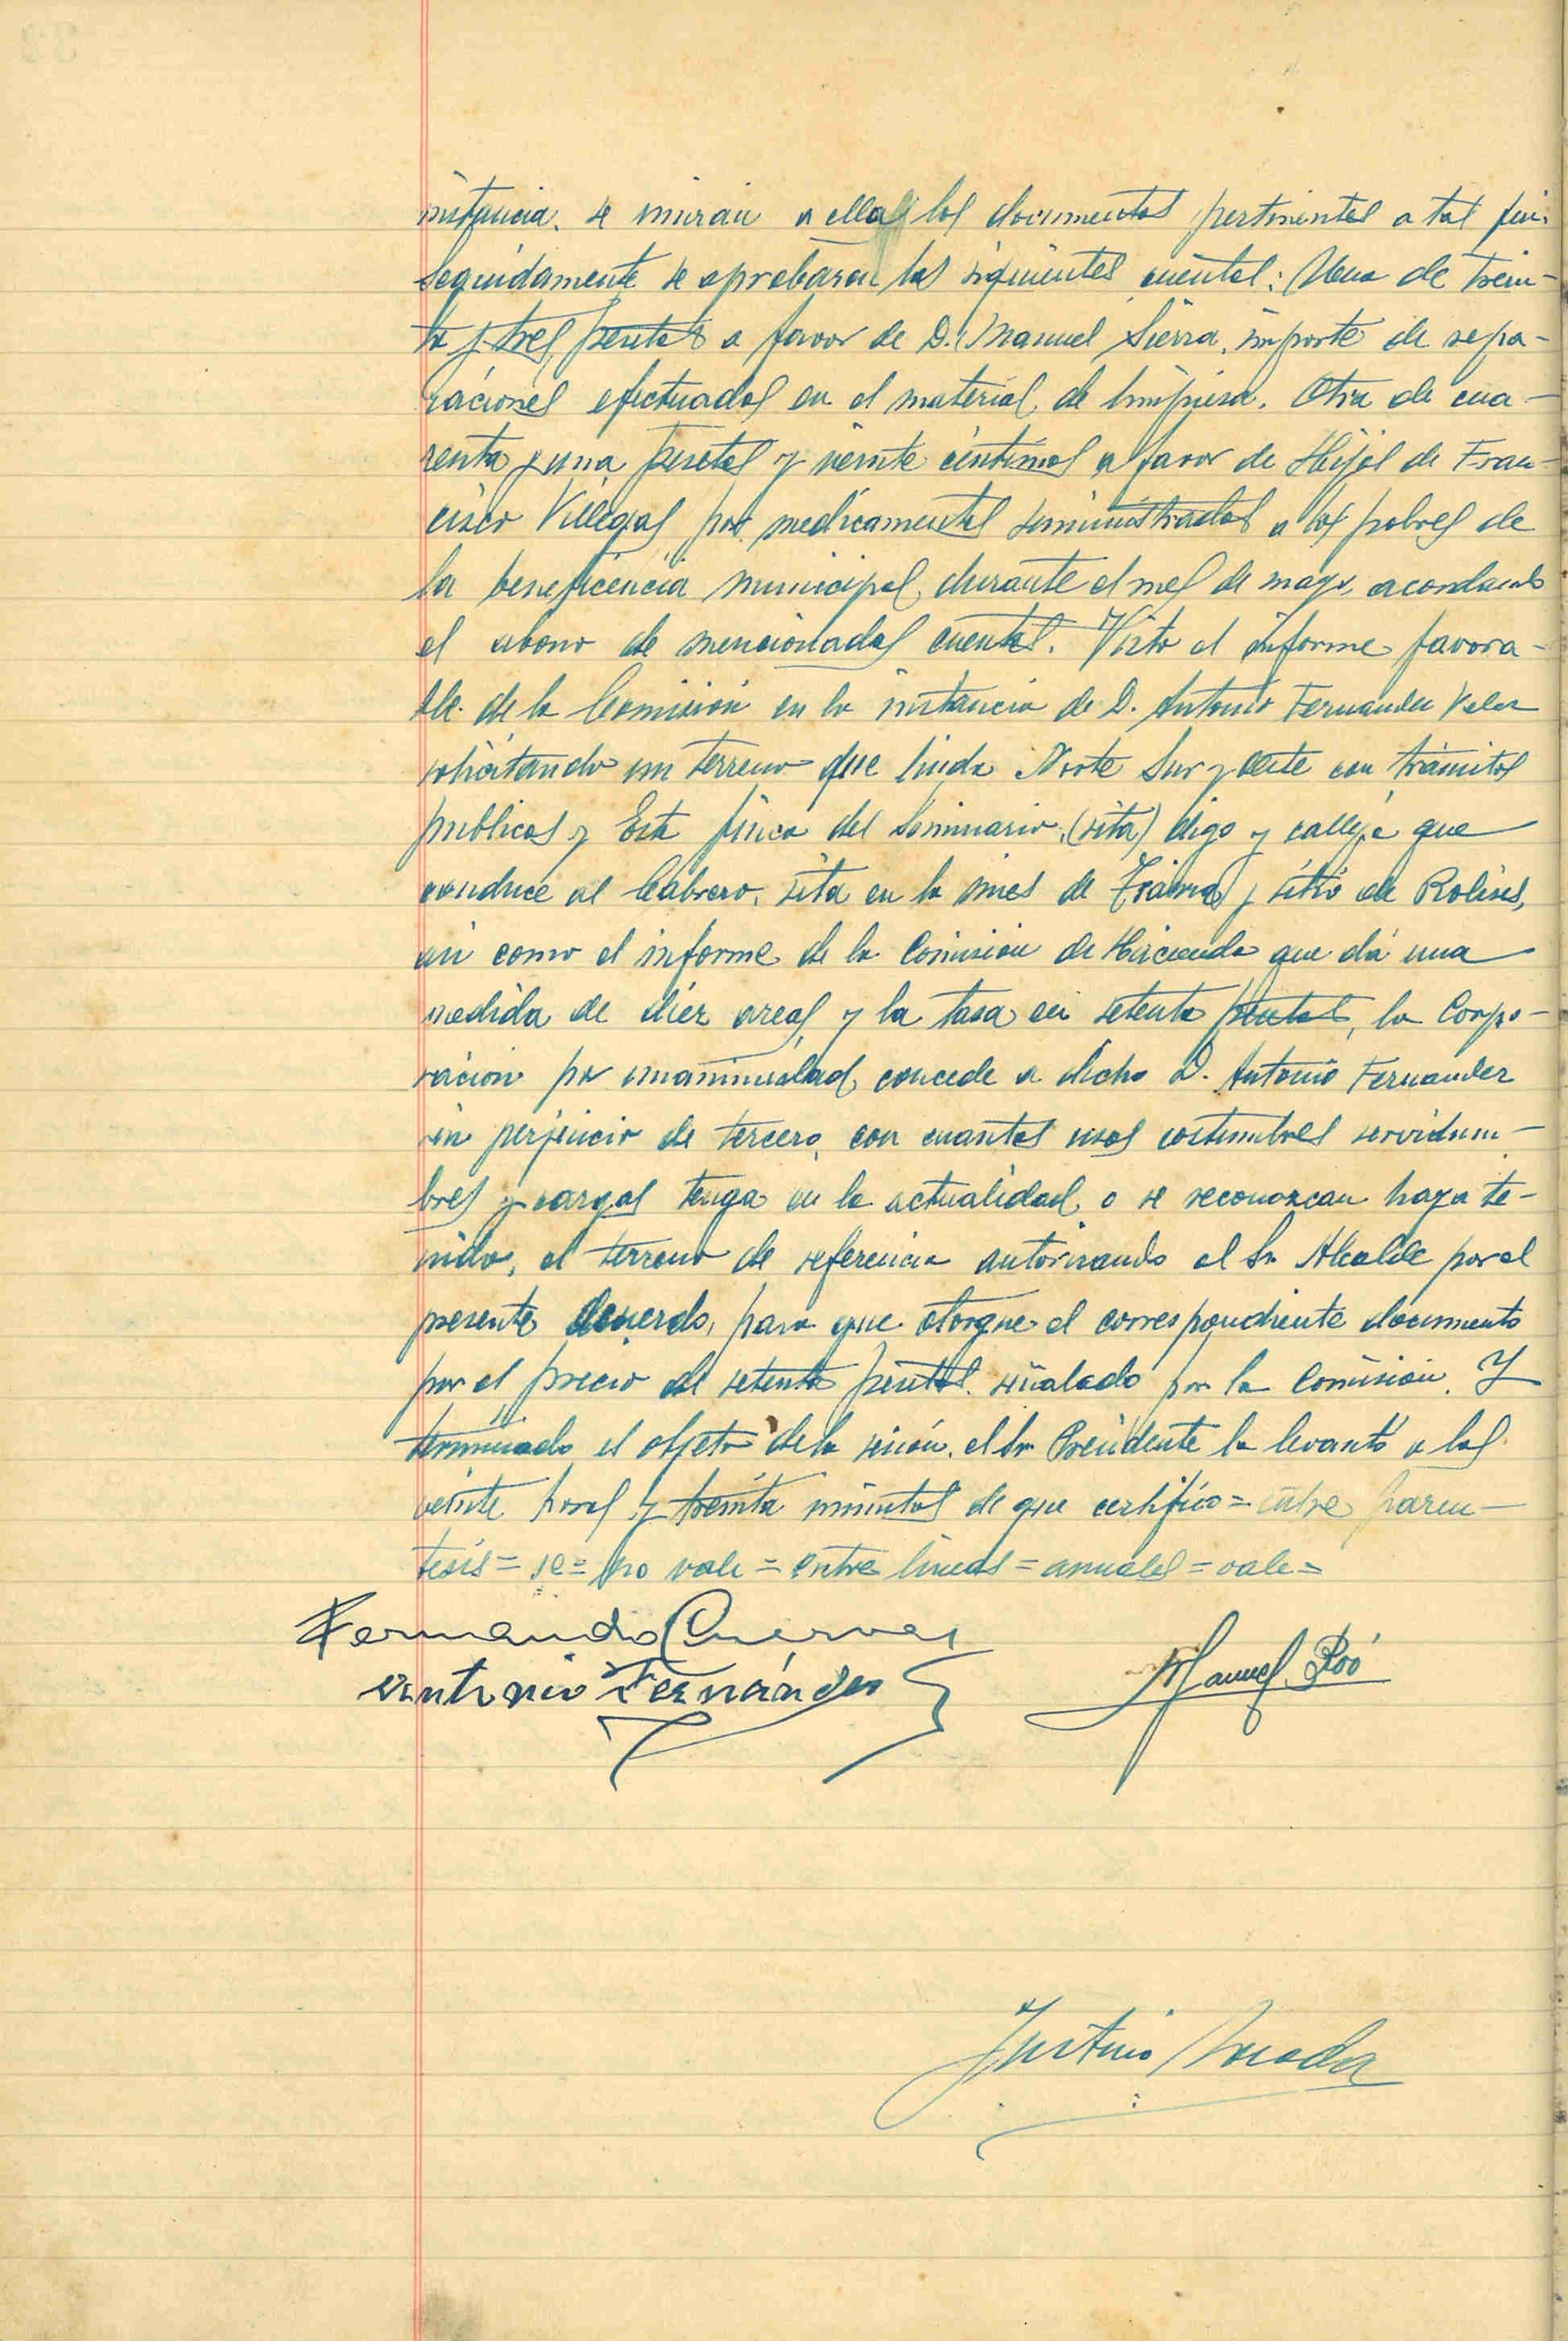 instancia, se unirán a ellas los documentos pertinentes a tal fin.
Seguidamente se aprobaron las siguientes cuentas: Una de trein-
ta y tres pesetas a favor de D. Manuel Sierra, importe de repa-
raciones efectuadas en el material de limpieza. Otra de cua-
renta y una pesetas y veinte céntimos a favor de Hijos de Fran-
cisco Villegas por medicamentos suministrados a los pobres de
la beneficencia municipal, durante el mes de mayo, acordando
el abono de mencionadas cuentas. Visto el informe favora-
ble de la Comisión en la instancia de D. Antonio Fernandez Velez
solicitando un terreno que linda Norte Sur y Oeste con tránsitos
publicos y Este finca del Seminario, (sita) digo y calleja que
conduce al Cabrero, sita en la mies de y sitio de
asi como el informe de la Comisión de Hacienda que dá una
medida de diez areas, y la tasa en setenta pesetas, la Corpo-
racion por unanimidad, concede a dicho D. Antonio Fernandez
sin perjuicio de tercero, con cuantos usos costumbres servidum-
bres y cargas tenga en la actualidad, o se reconozcan haya te-
nido, el terreno de referencia autorizando al Sr. Alcalde por el
presente acuerdo, para que otorgue el correspondiente documento
por el precio de setenta pesetas señalado por la Comisión. Y
terminado el objeto de la sesión, el Sr. Presidente la levantó a las
veinte horas y treinta minutos de que certifico = entre paren-
tesis = se = no vale = entre lineas = anuales = vale =
Fernando Cuevas
Antonio Fernández
Manuel Róó
Justino